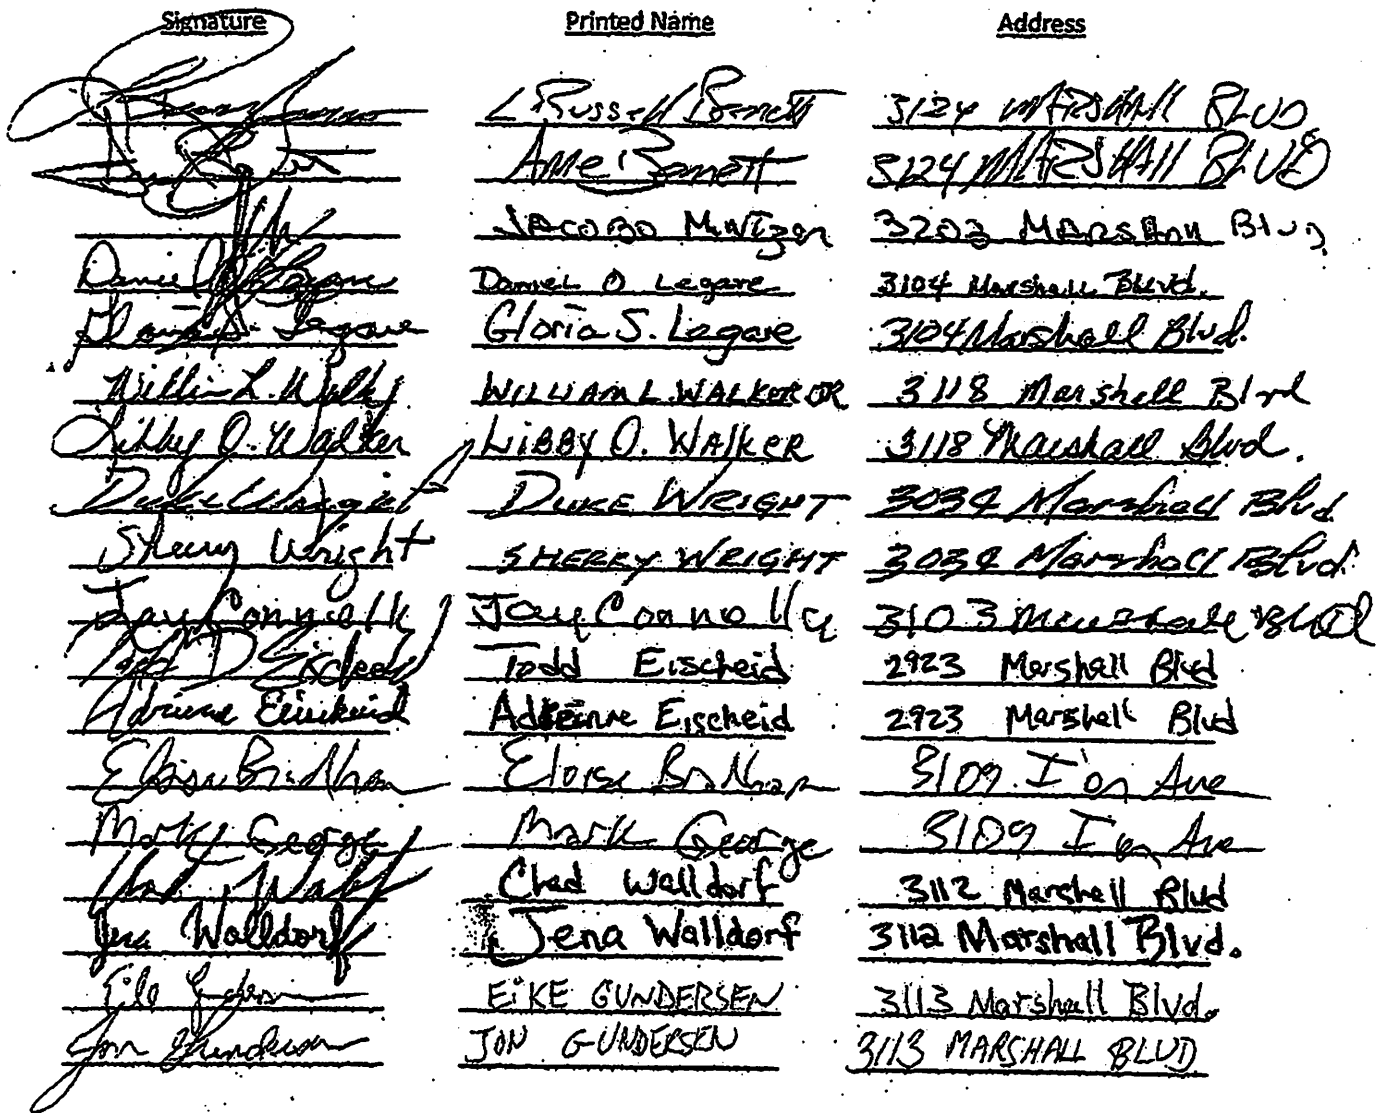 Signature Printed Name Address
L Russell Bennett 3124 MARSHALL BLVD
Anne Bennett 3124 MARSHALL BLVD
JACOBO 3203 Blvd
Daniel O Legare 3104 Marshall Blvd.
Gloria S. Legare Gloria S. Legare 3104 Marshall Blvd.
William L. WILLIAM L. WALKER 3118 Marshall Blvd
Libby O. Walker LIBBY O. WALKER 3118 Marshall Blvd.
Duke Wright DUKE WRIGHT 3034 Marshall Blvd
Sherry Wright SHERRY WRIGHT 3034 Marshall Blvd.
Jay Connolly Jay Connolly 3103 Marshall BLVD
Todd D Eischeid Todd Eischeid 2923 Marshall Blvd
Adrienne Eischeid Adrienne Eischeid 2923 Marshall Blvd
Eloise Bradham Eloise Bradham 3109 I'on Ave
Mark George Mark George 3109 I'on Ave
Chad Walldorf 3112 Marshall Blvd
Jena Walldorf Jena Walldorf 3112 Marshall Blvd.
EIKE GUNDERSEN 3113 Marshall Blvd.
Jon Gundersen JON GUNDERSEN 3113 MARSHALL BLVD